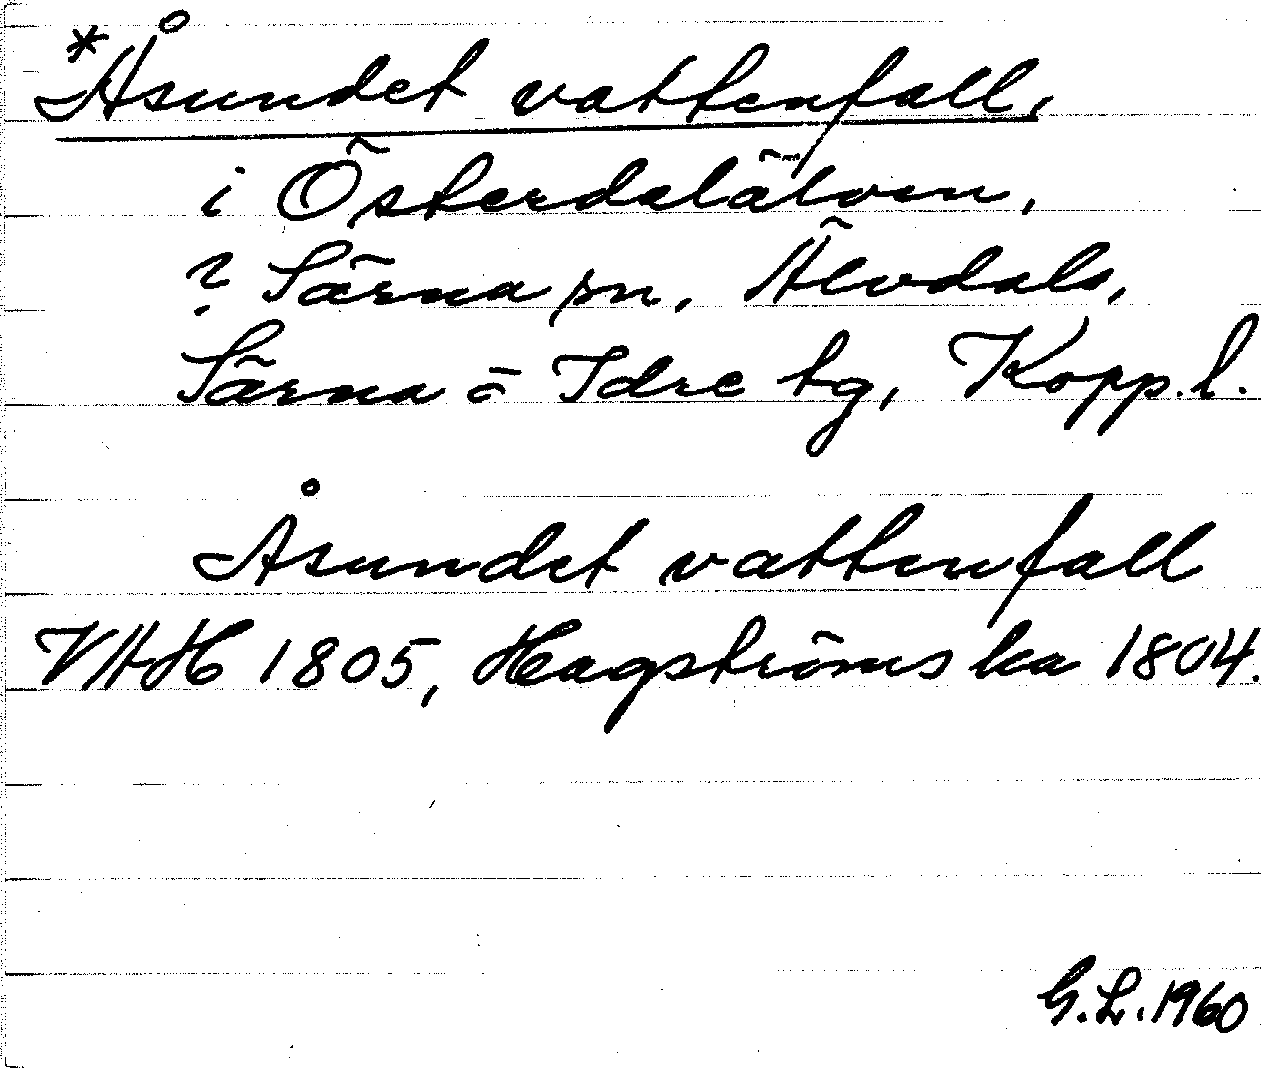 *Åsundet vattenfall,
i Österdalälven,
? Särna sn, Älvdals,
Särna o Idre tg, Kopp. l.
Åsundet vattenfall
VAH 1805, Hagströms ka 1804.
G.L. 1960